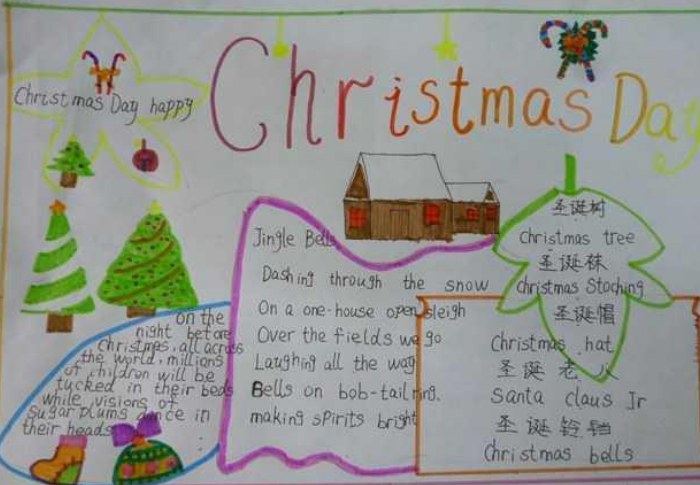 Christmas Day
Christmas Day happy
Jingle Bells
Dashing through the snow
On a one-house open sleigh
Over the fields we go
Laughing all the way
Bells on bob-tail ring.
making sPirits bright
on the
night before
christmas, all across
the world, millions
of children will be
tucked in their beds
while visions of
sugar plums dance in
their heads
圣诞树
christmas tree
圣诞袜
christmas Stoching
圣诞帽
christmas hat
圣诞老人
santa claus Jr
圣诞铃铛
Christmas bells